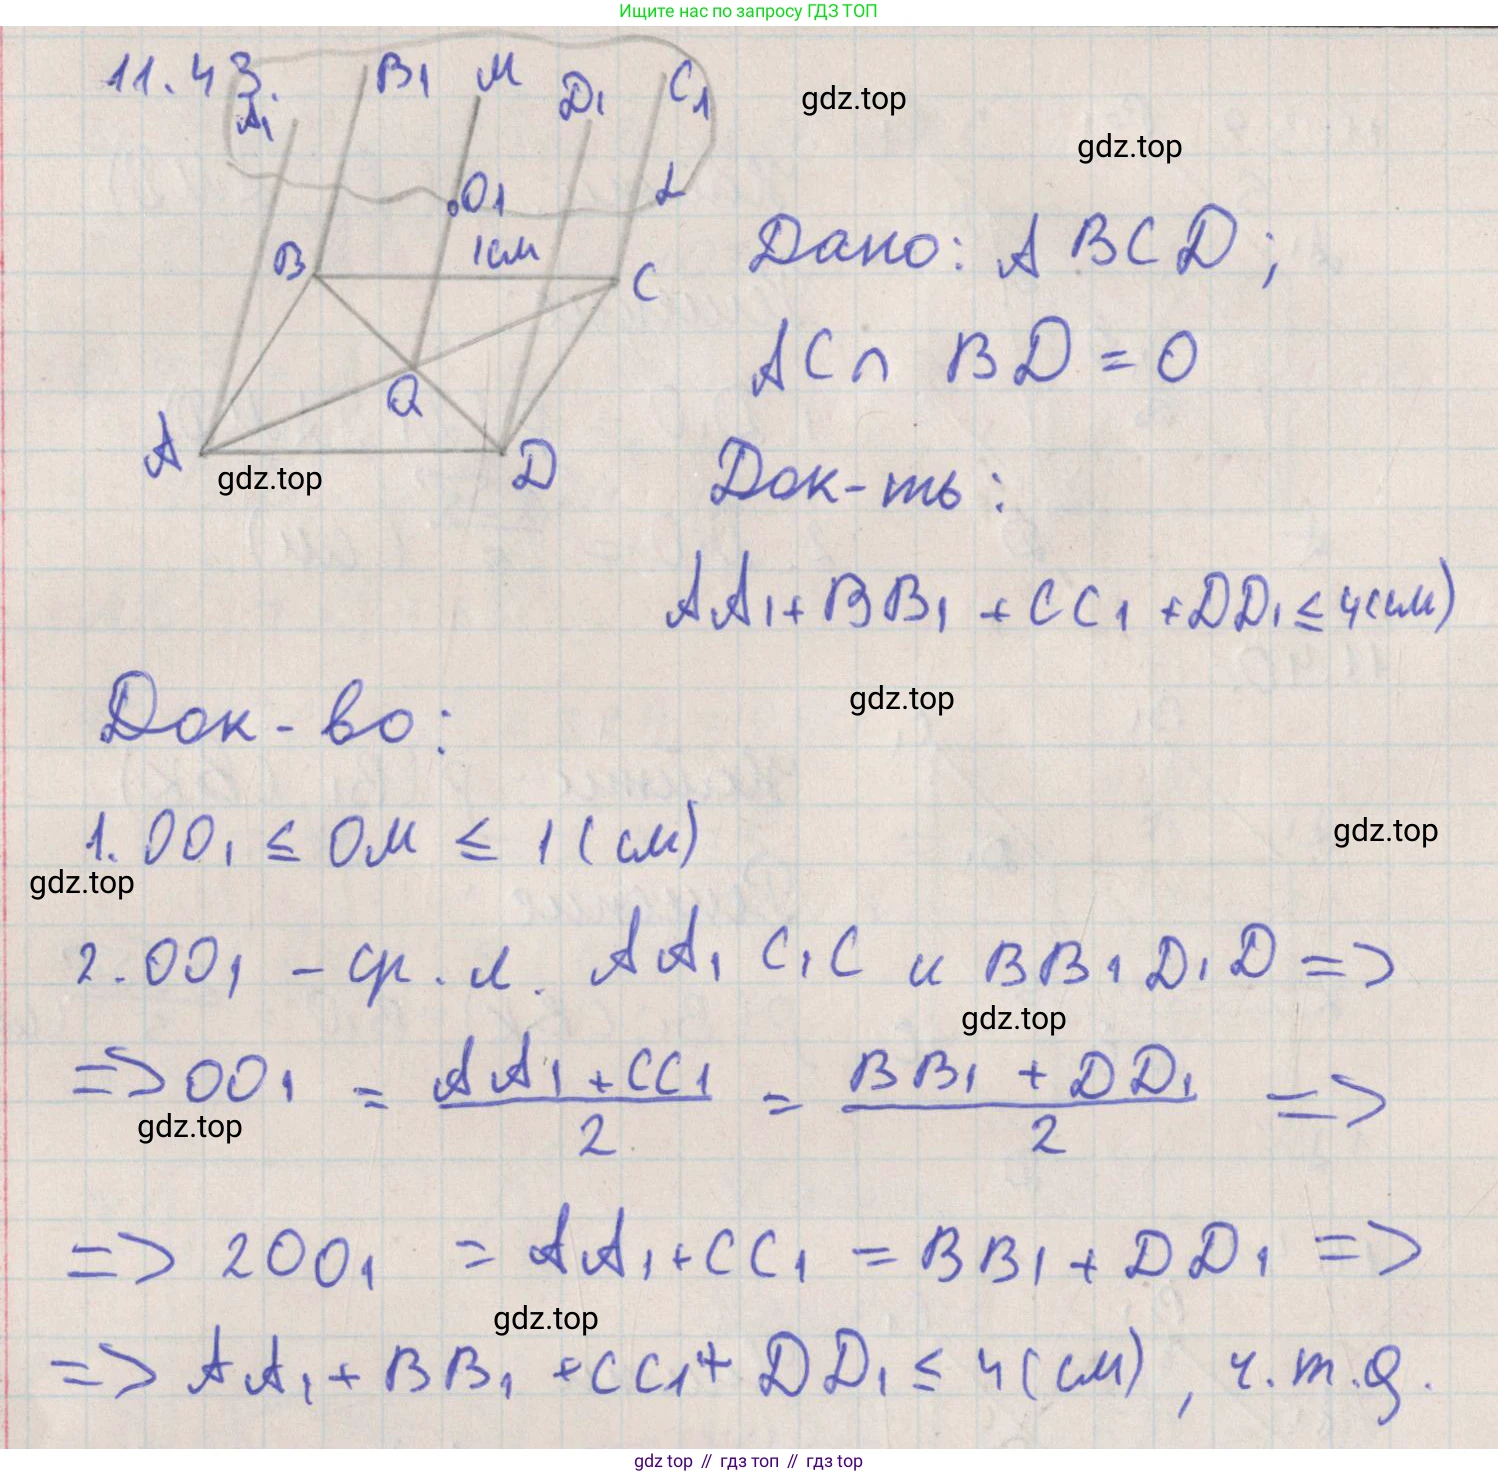 Ищите нас по запросу ГДЗ ТОП
11.43.
A₁ B₁ M D₁ C₁
gdz.top
gdz.top
O₁ L
1см
B C
O
A D
gdz.top
Дано: ABCD;
AC∩ BD = O
Док-ть:
AA₁ + BB₁ + CC₁ + DD₁ ≤ 4(см)
gdz.top
Док-во:
1. OO₁ ≤ OM ≤ 1 (см)
gdz.top
gdz.top
2. OO₁ - ср. л. AA₁C₁C и BB₁D₁D =>
gdz.top
=> OO₁ = (AA₁ + CC₁)/2 = (BB₁ + DD₁)/2 =>
gdz.top
=> 2OO₁ = AA₁ + CC₁ = BB₁ + DD₁ =>
gdz.top
=> AA₁ + BB₁ + CC₁ + DD₁ ≤ 4 (см), ч.т.д.
gdz top // гдз топ // гдз top